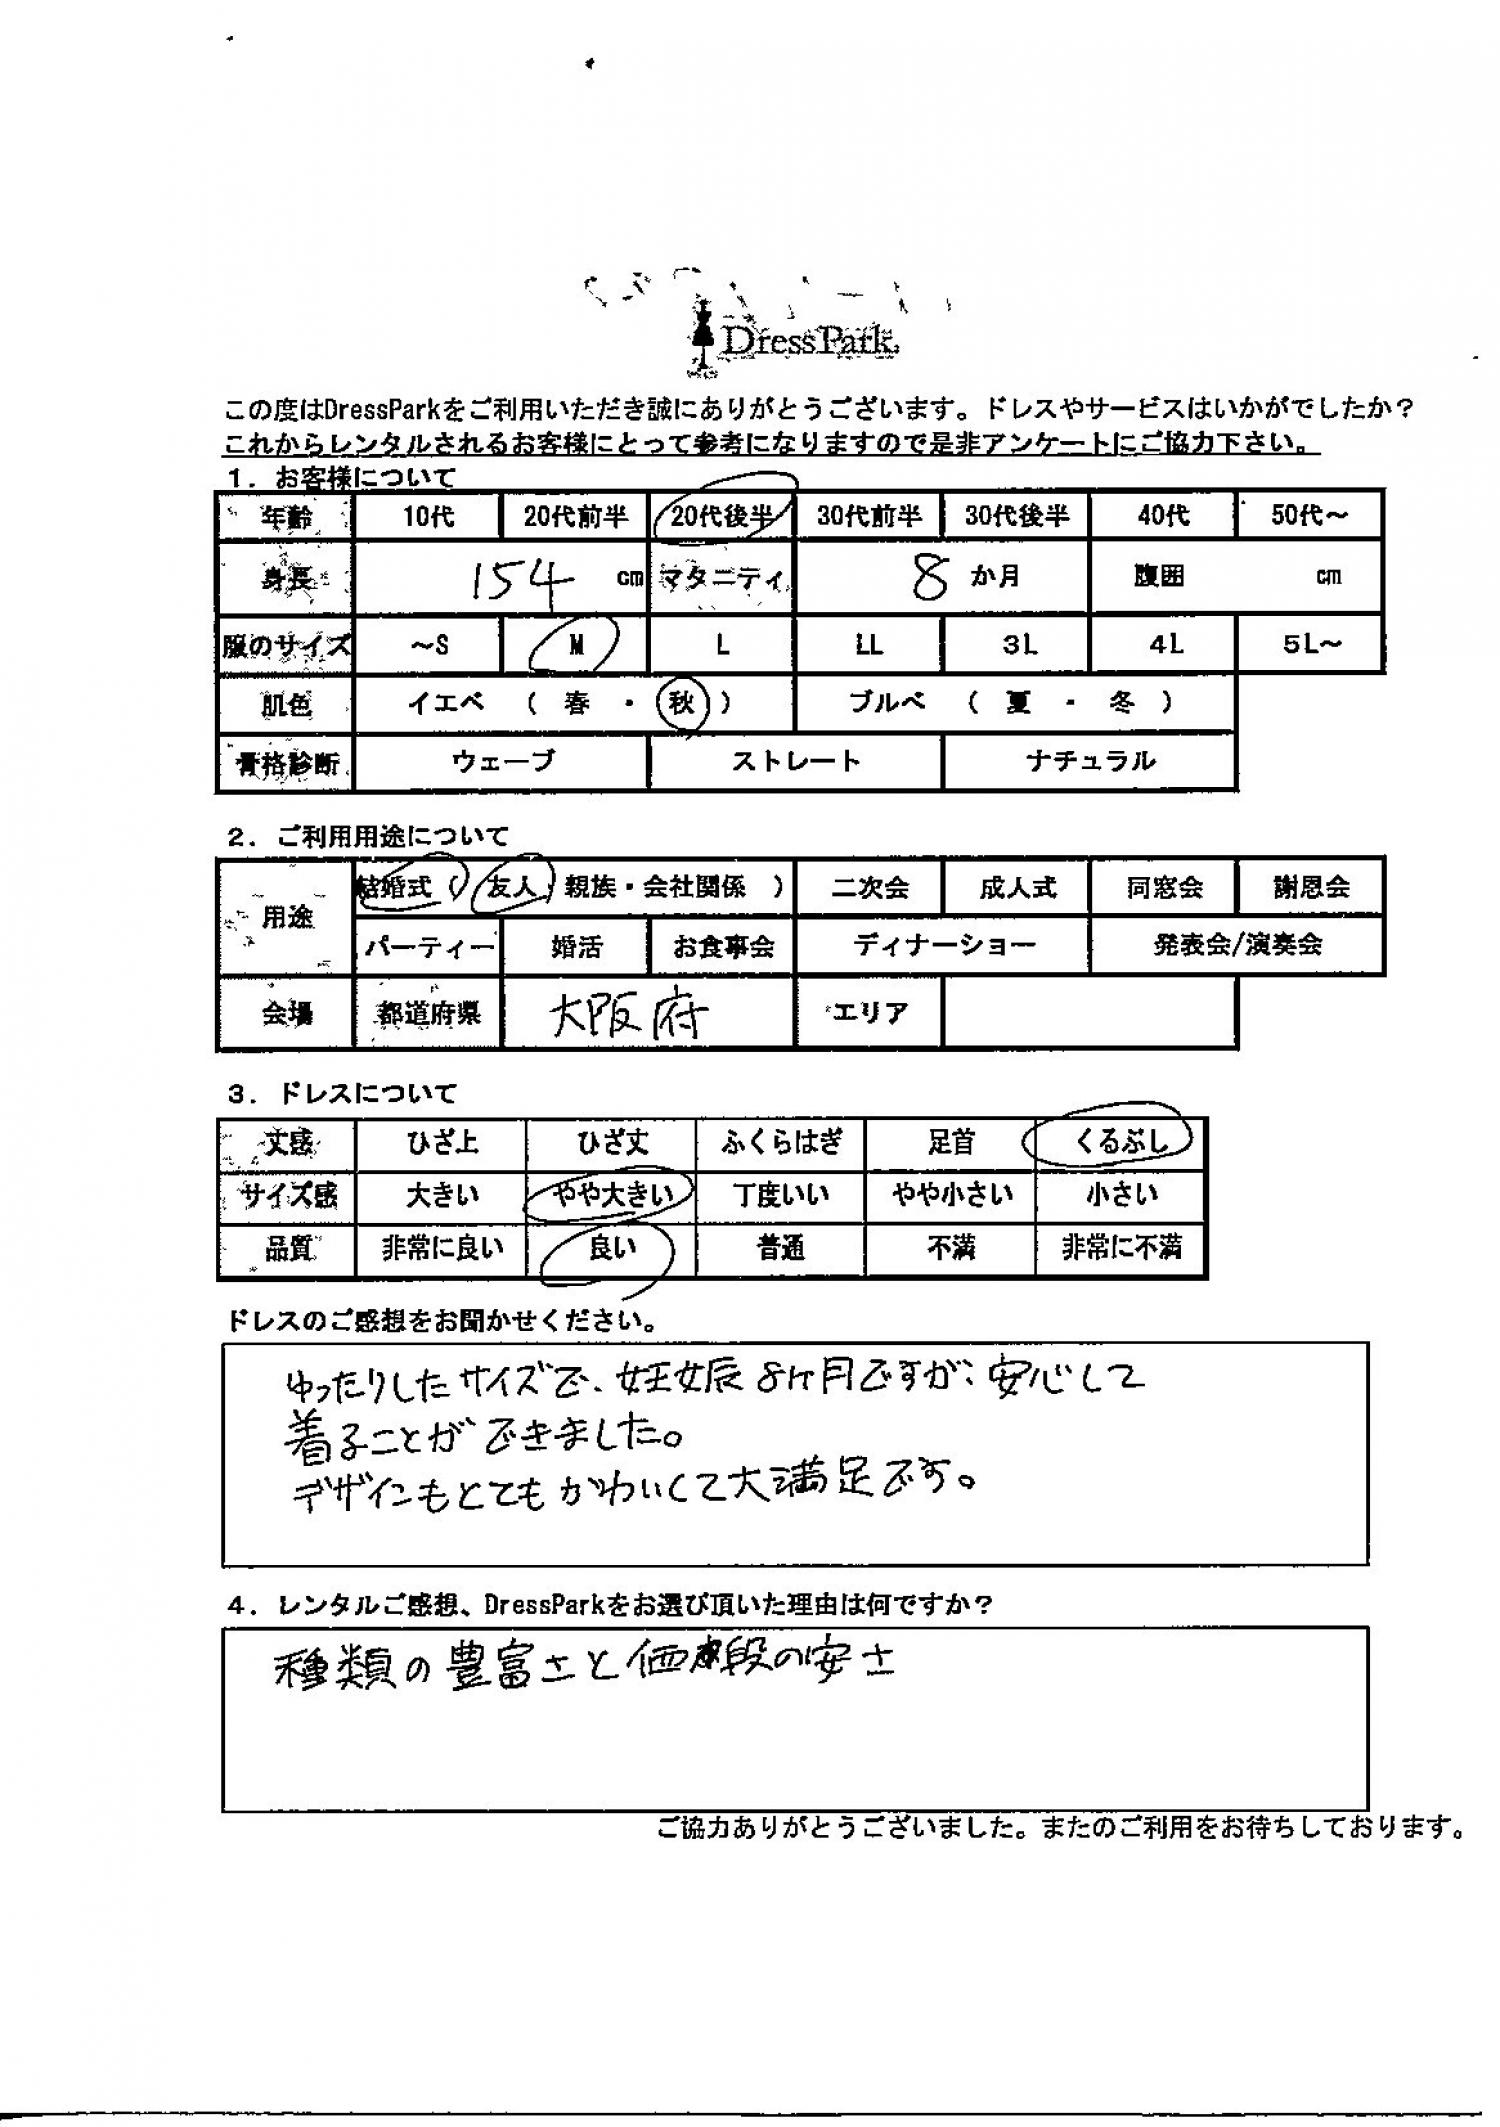 DressPark.
この度はDressParkをご利用いただき誠にありがとうございます。ドレスやサービスはいかがでしたか？
これからレンタルされるお客様にとって参考になりますので是非アンケートにご協力下さい。
1. お客様について
年齢 10代 20代前半 20代後半 30代前半 30代後半 40代 50代～
身長 154 cm マタニティ 8 か月 腹囲 cm
服のサイズ ～S M L LL 3L 4L 5L～
肌色 イエベ （ 春 ・ 秋 ） ブルベ （ 夏 ・ 冬 ）
骨格診断 ウェーブ ストレート ナチュラル
2. ご利用用途について
用途 結婚式（ 友人・親族・会社関係 ） 二次会 成人式 同窓会 謝恩会
パーティー 婚活 お食事会 ディナーショー 発表会/演奏会
会場 都道府県 大阪府 エリア
3. ドレスについて
丈感 ひざ上 ひざ丈 ふくらはぎ 足首 くるぶし
サイズ感 大きい やや大きい 丁度いい やや小さい 小さい
品質 非常に良い 良い 普通 不満 非常に不満
ドレスのご感想をお聞かせください。
ゆったりしたサイズで、妊娠8ヶ月ですが、安心して
着ることができました。
デザインもとてもかわいくて大満足です。
4. レンタルご感想、DressParkをお選び頂いた理由は何ですか？
種類の豊富さと価段の安さ
ご協力ありがとうございました。またのご利用をお待ちしております。